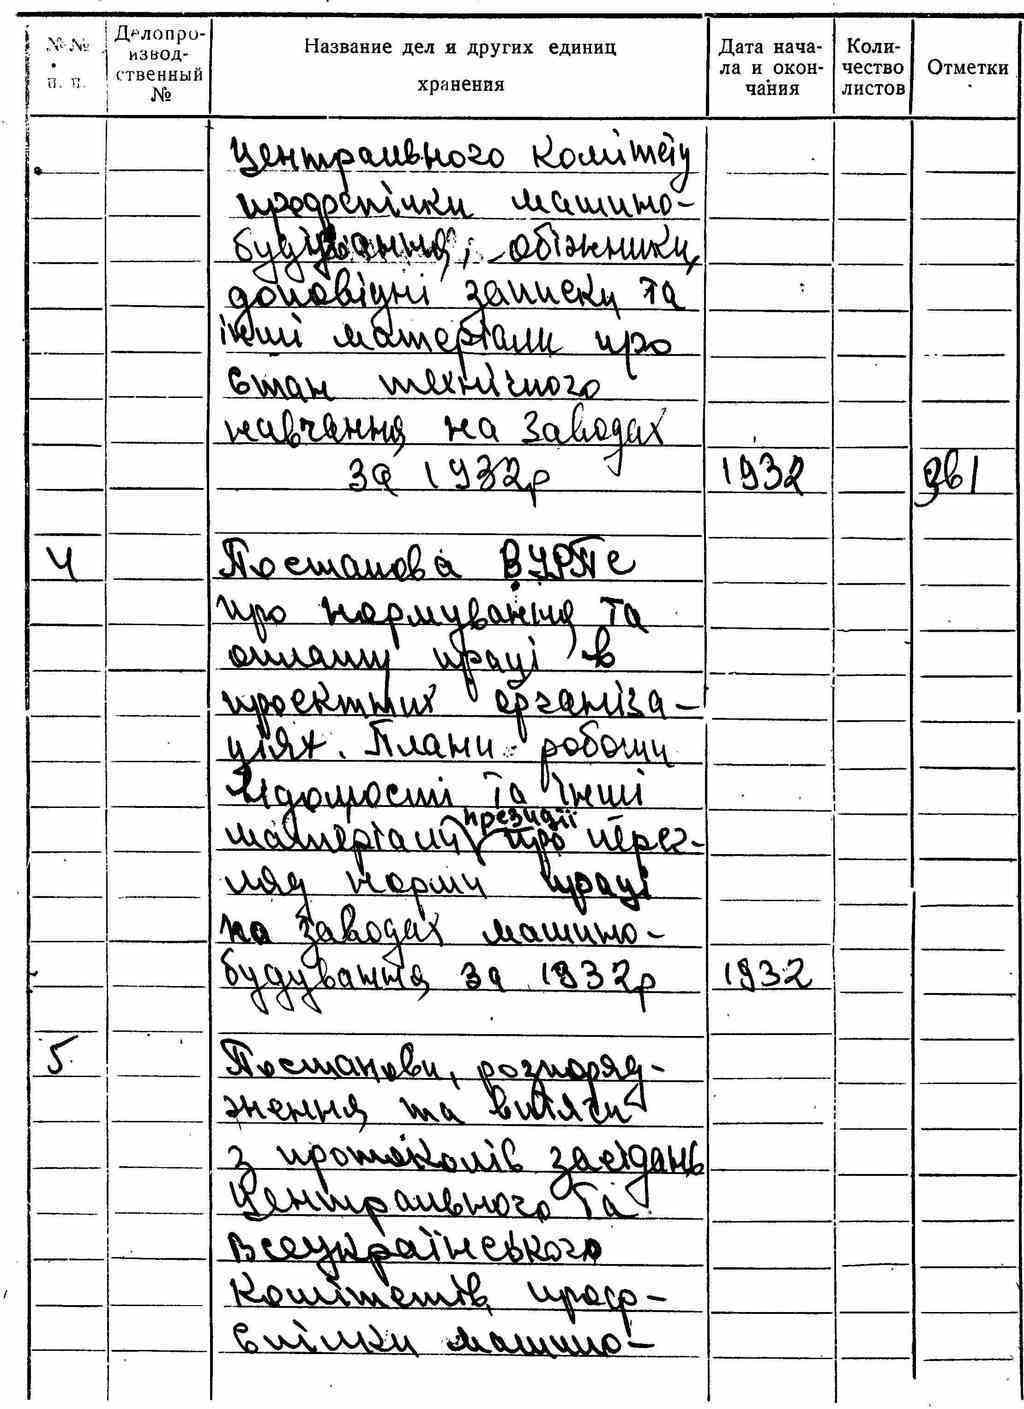 №№ п. п.
Делопроизводственный №
Название дел и других единиц хранения
Дата начала и окончания
Количество листов
Отметки
Центрального комітету
профспілки машино-
будування, обіжники,
доповідні записки та
інші матеріали про
стан технічного
навчання на заводах
за 1932р 1932
4 Постанова ВУРПС
про нормування та
оплату праці в
проектних організа-
ціях. Плани роботи
та інші
президії
матеріали про перег-
ляд норми праці
на заводах машино-
будування за 1932р 1932
5 Постанови, розпоряд-
ження та витяги
з протоколів засідань
Центрального та
Всеукраїнського
Комітетів проф-
спілки машино-